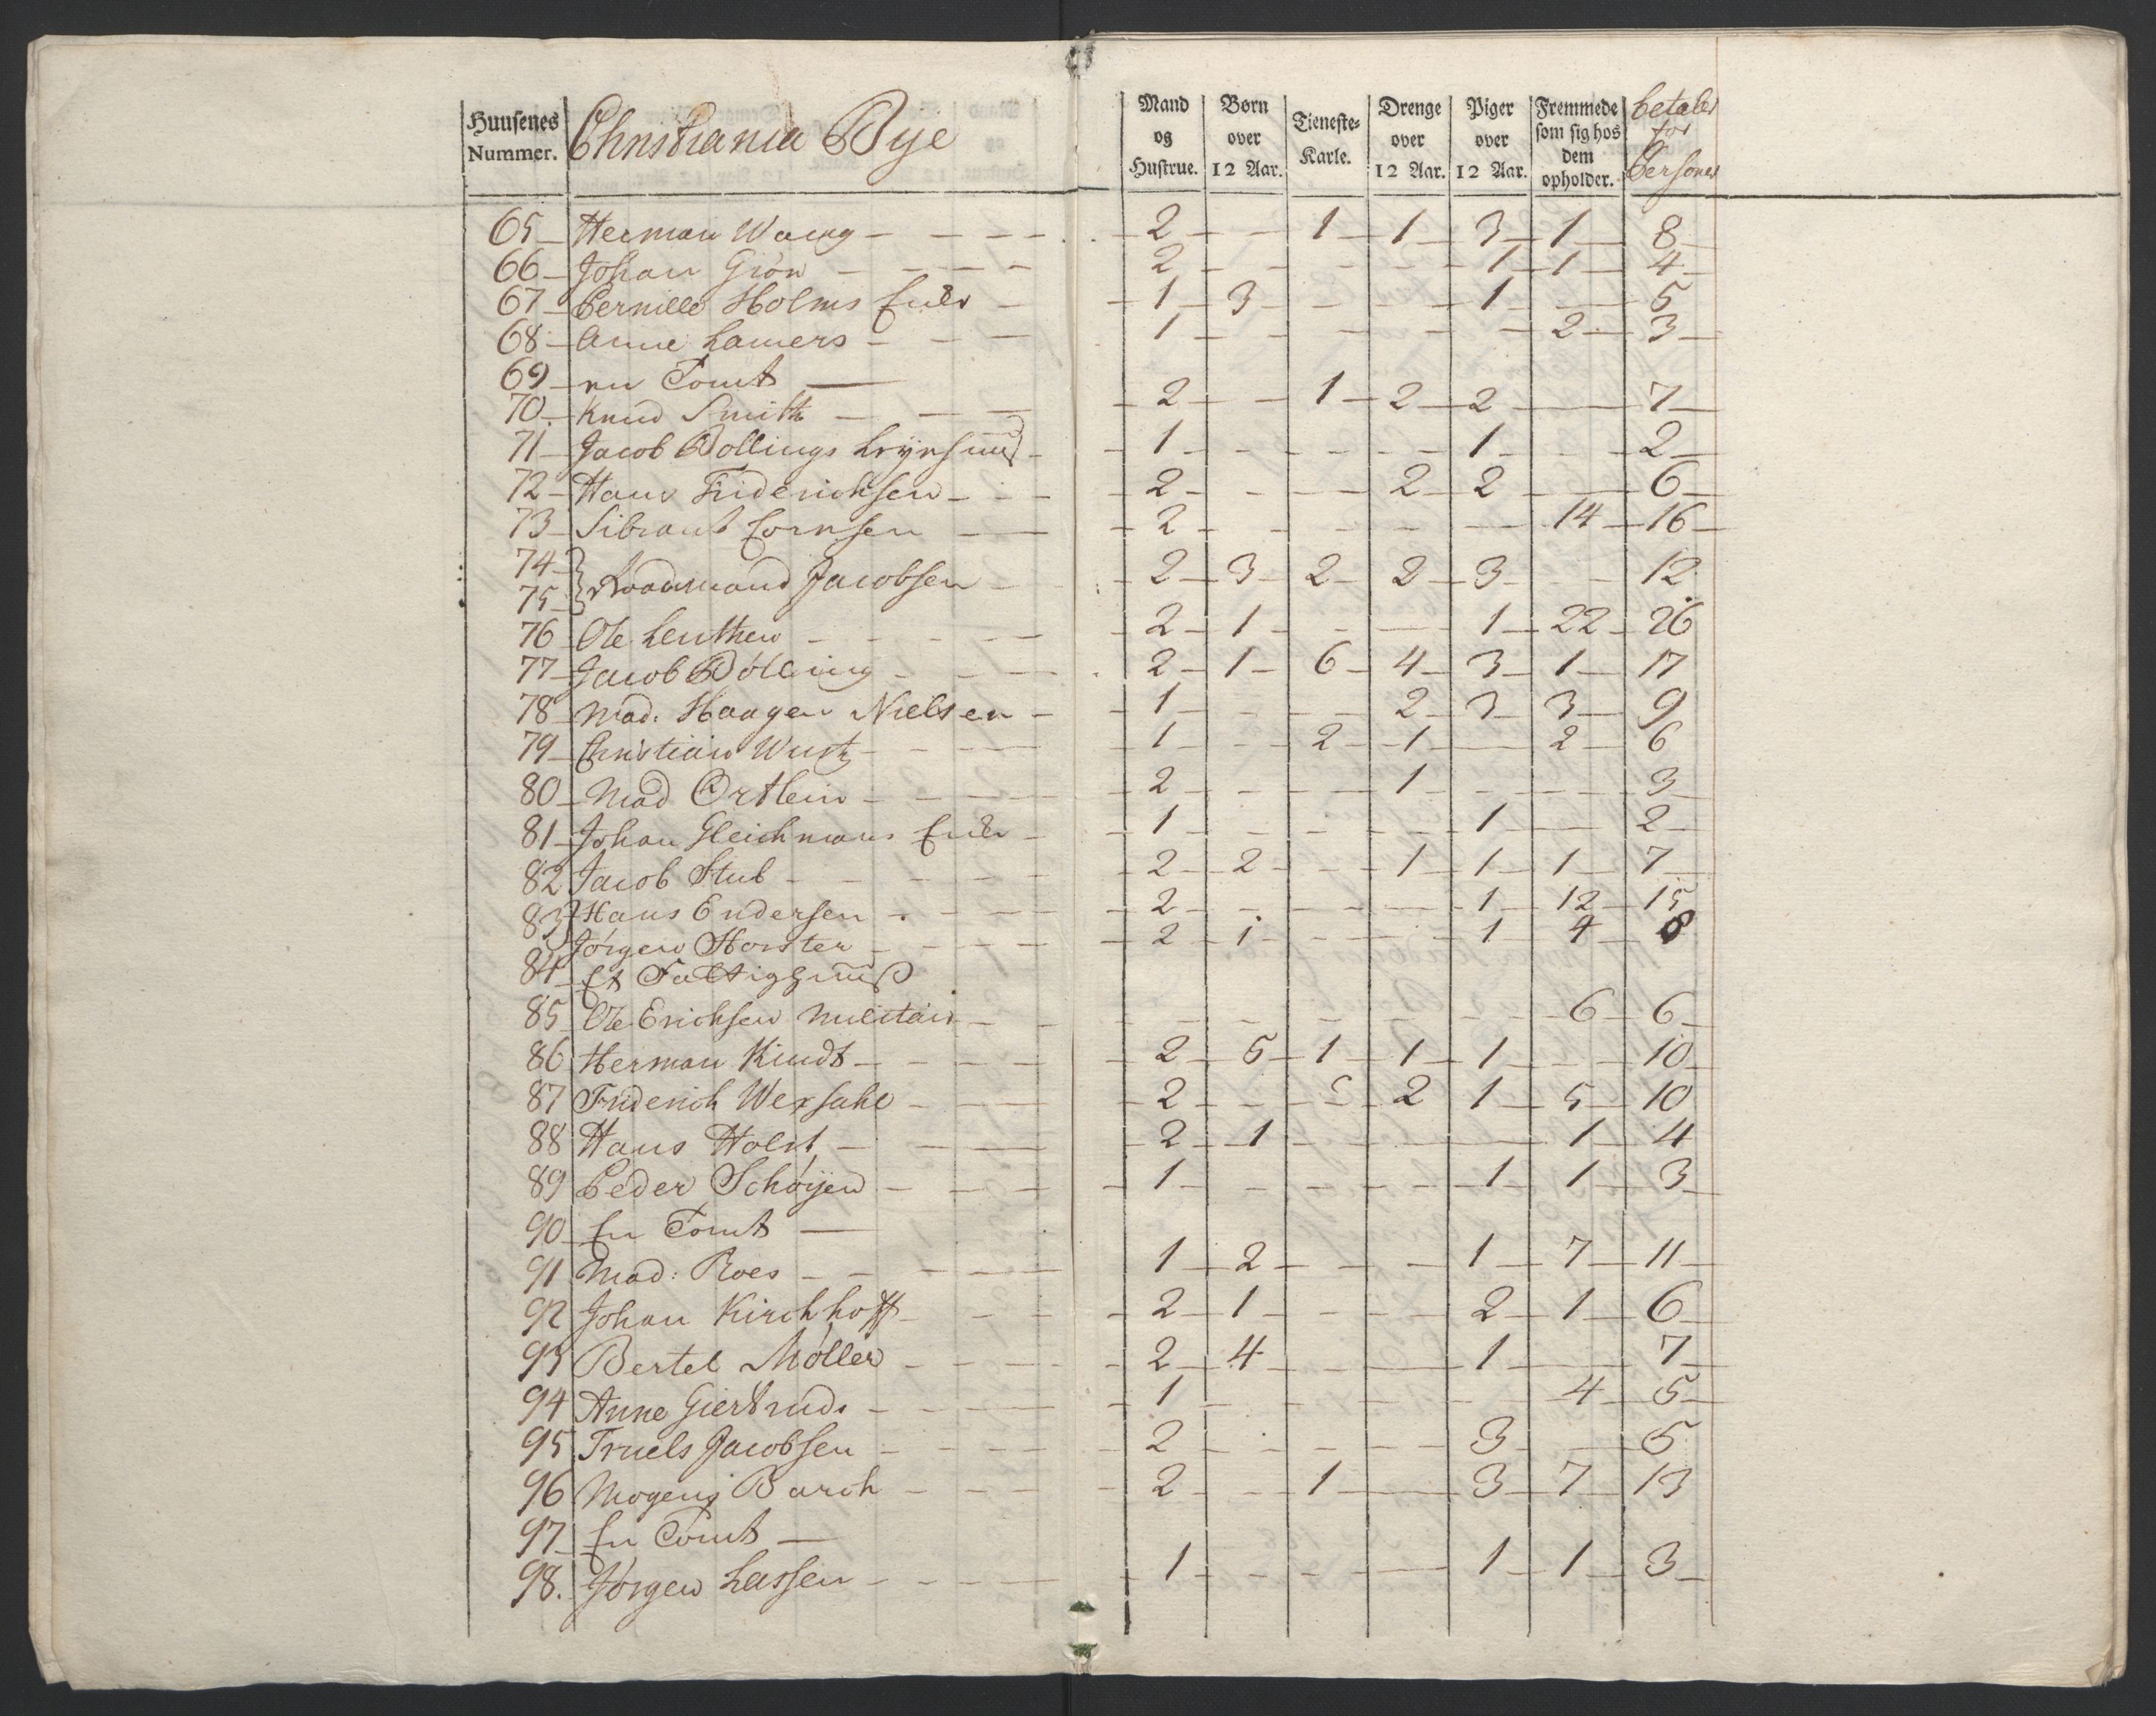 Huusenes Nummer. Christiania Bye Mand og Hustrue. Børn over 12 Aar. Tieneste-Karle. Drenge over 12 Aar. Piger over 12 Aar. Fremmede som sig hos dem opholder. betaler for Persone
65 Herman Wang - 2 - - 1 1 3 1 8
66 Johan Giön - 2 - - - - 1 1 4
67 Pernille Holms Encke 1 3 - - 1 - 5
68 Anne Lamers - 1 - - - - 2 3
69 en Tomt —
70. Knud Smith - 2 - 1 2 2 - 7
71 Jacob Bollings 1 - - - 1 - 2
72 Hans Friderichsen - 2 - - 2 2 - 6
73 Sibrant Cornsen - 2 - - - - 14 16
74 75 } Raadmand Jacobsen 2 3 2 2 3 - 12
76 Ole Leuthen - 2 1 - - 1 22 26
77 Jacob Bölling - 2 1 6 4 3 1 17
78 Mad. Haagen Nielsen - 1 - - 2 3 3 9
79 Christian Wust - 1 - 2 1 - 2 6
80 Mad Ortlein - 2 - - 1 - - 3
81 Johan Gleichmans Encke 1 - - - 1 - 2
82 Jacob Stub - 2 2 - 1 1 1 7
83 } Hans Endersen - 2 - - - 1 12 15
Jörgen Horster - 2 1 - - 1 4 8
84 Et Fattighuus
85 Ole Erichsen Militair - - - - - - 6 6
86 Herman Kindt - 2 5 1 1 1 - 10
87 Friderich Wexsahl - 2 - - 2 1 5 10
88 Hans Holst - 2 1 - - - 1 4
89 Peder Schöijen - 1 - - - 1 1 3
90 En Tomt —
91 Mad: Roes - 1 2 - - 1 7 11
92 Johan Kirchhoff - 2 1 - - 2 1 6
93 Bertel Möller - 2 4 - - 1 - 7
94 Anne Giertruds - 1 - - - - 4 5
95 Truels Jacobsen - 2 - - - 3 - 5
96 Mogens Barch - 2 - 1 - 3 7 13
97 En Tomt —
98. Jörgen Lassen - 1 - - - 1 1 3